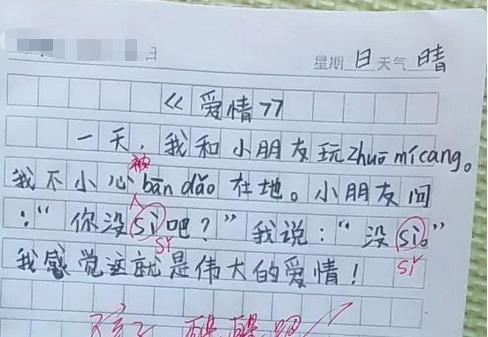 日 星期 日 天气 晴
《爱情》
一天，我和小朋友玩zhuō mícang。
被
我不小心bān dǎo在地。小朋友问
：“你没sǐ吧？”我说：“没sǐ。”
sʏ sʏ
我感觉这就是伟大的爱情！
孩子 醒醒吧！